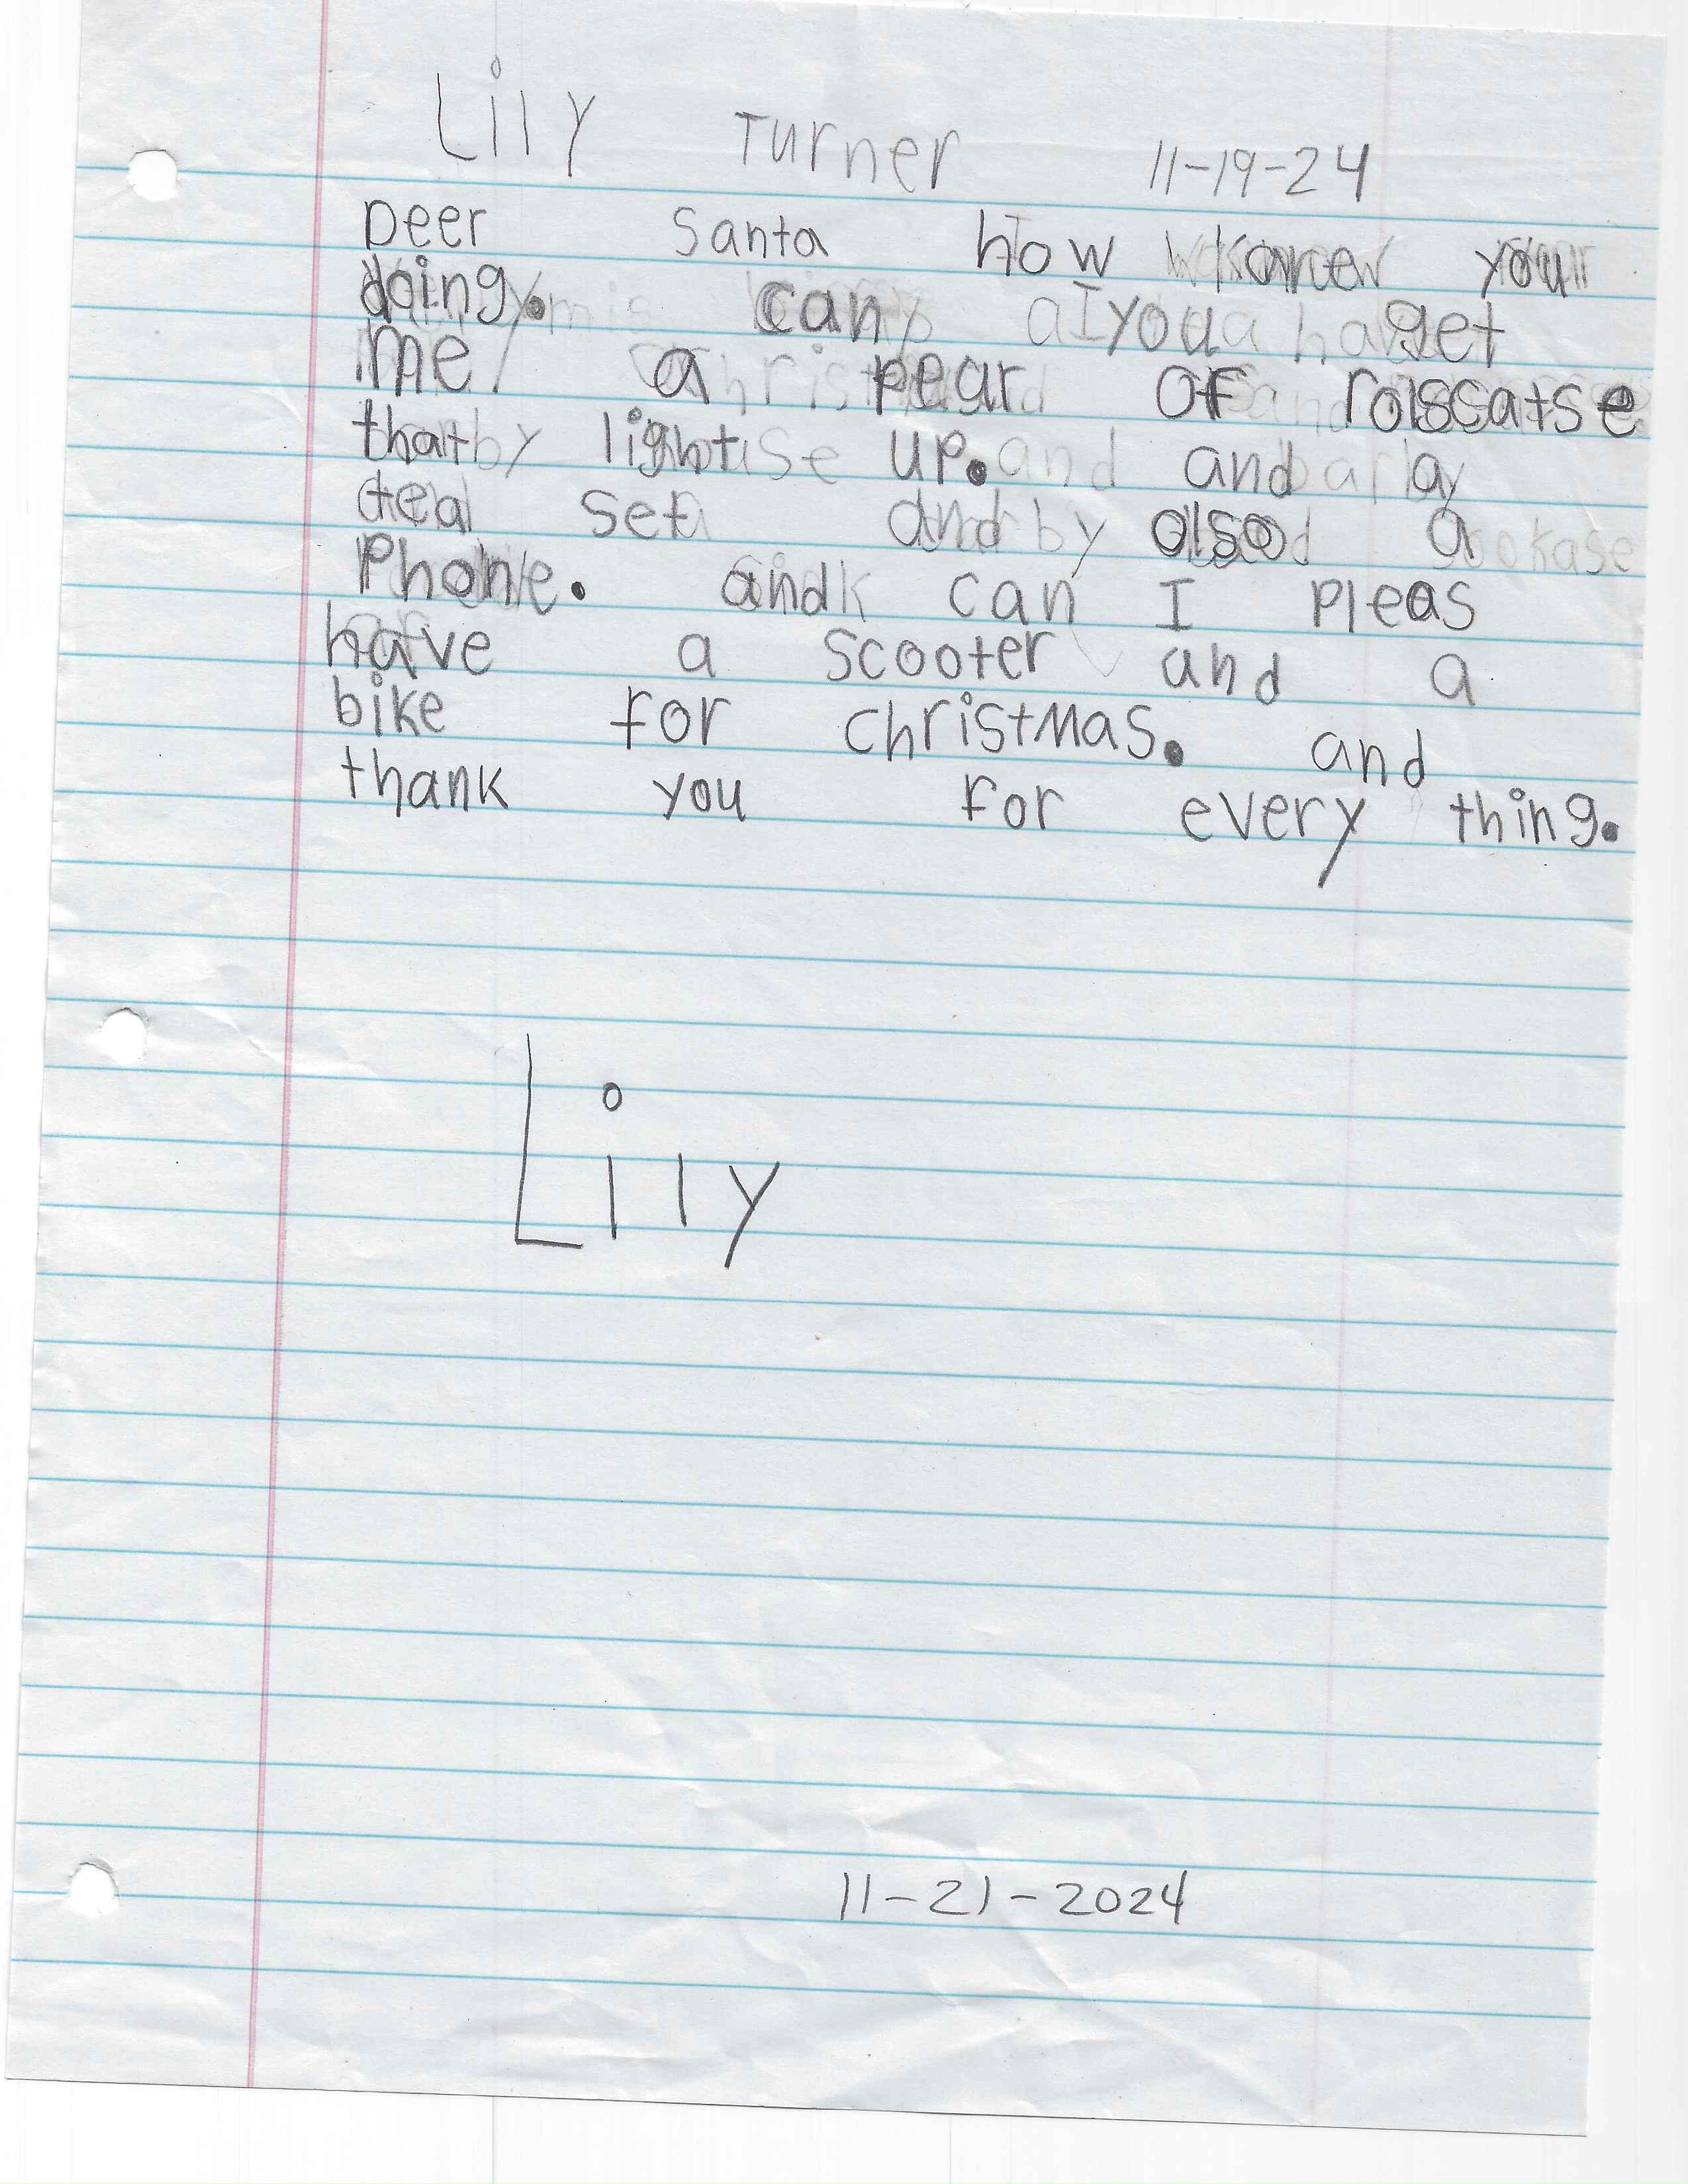 Lily Turner 11-19-24
Deer Santa how are you
doing. can you get
me a pear of rolscatse
that light up. and a
teal set and also a
Phone. and can I pleas
have a scooter and a
bike for christmas. and
thank you for every thing.
Lily
11-21-2024